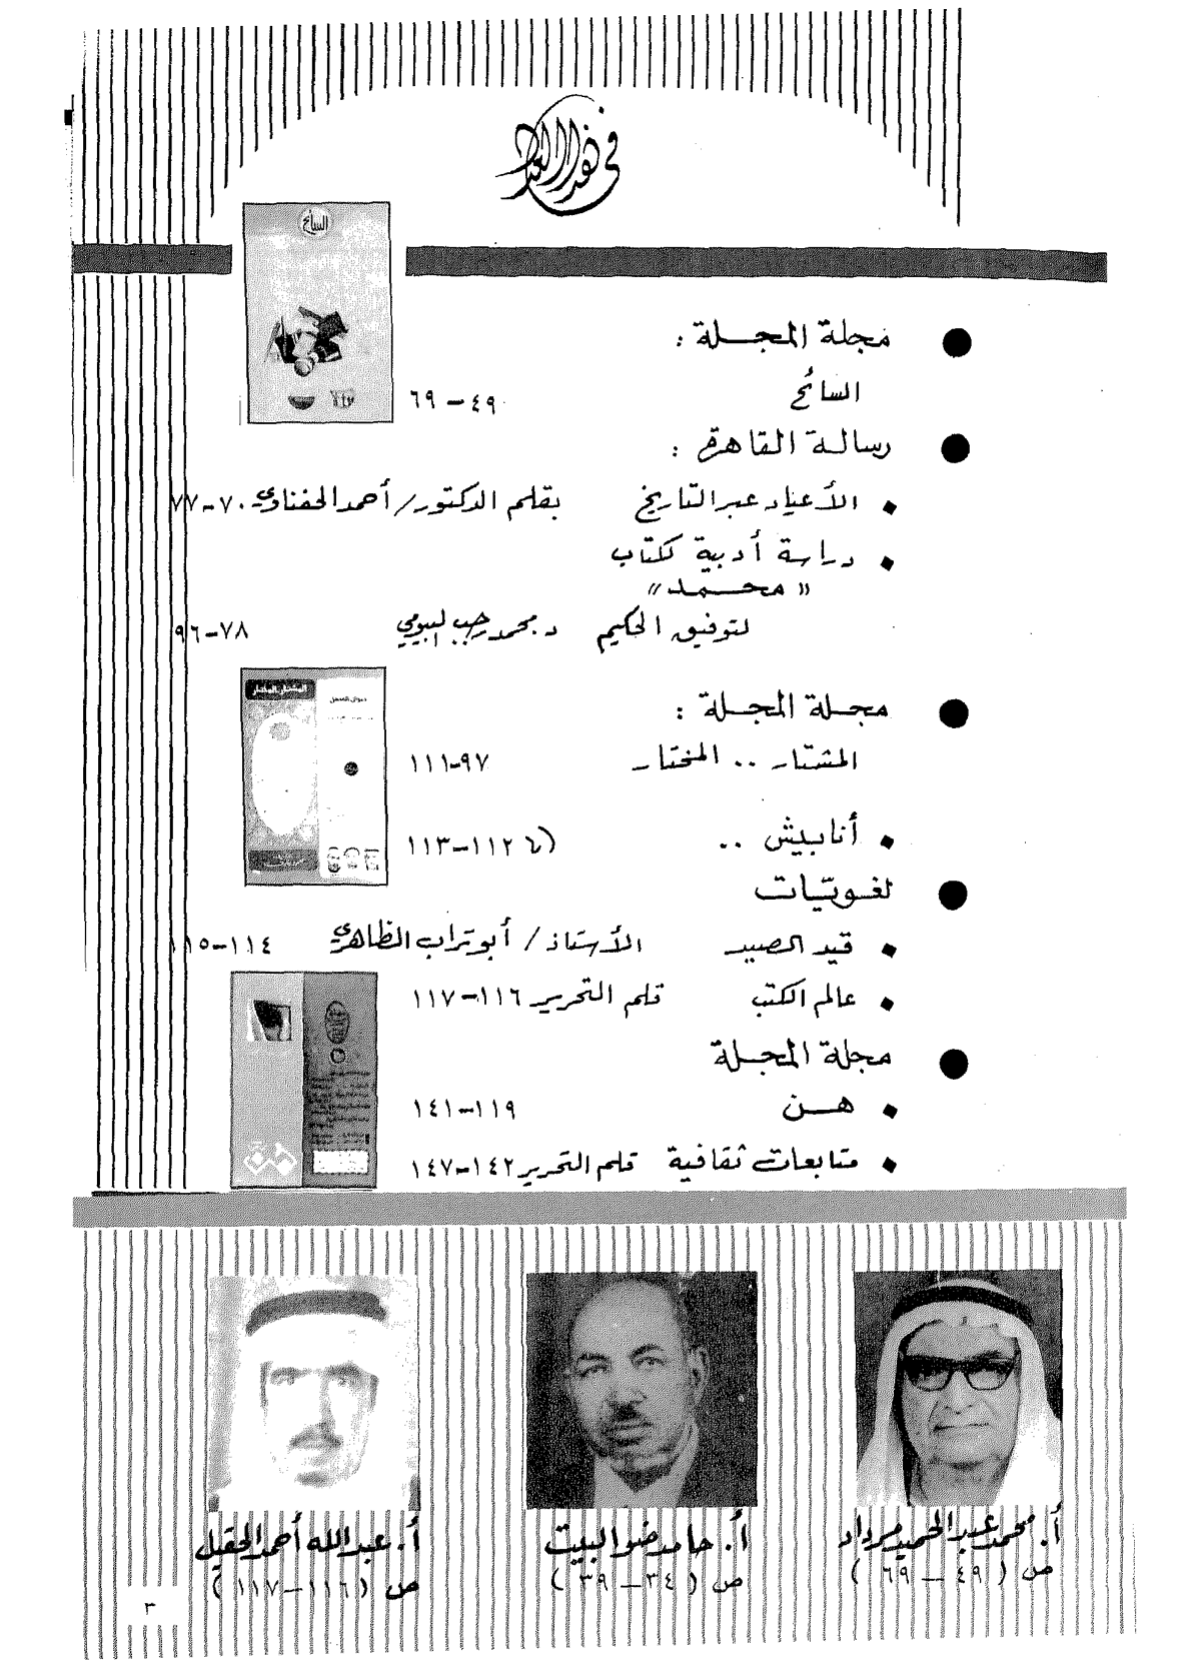 في هذا العدد
السائح
مجلة المجلة :
السائح ٤٩ - ٦٩
رسالة القاهرة :
الأعياد عبر التاريخ بقلم الدكتور/ أحمد الحفناوي ٧٠-٧٧
دراسة أدبية لكتاب
« محمد »
لتوفيق الحكيم د. محمد رجب البيومي ٧٨-٩٦
مجلة المجلة :
المشتار .. المختار ٩٧-١١١
أنابيش .. ١١٢-١١٣
لغويّات
قيد الصيد الأستاذ/ أبو تراب الظاهري ١١٤-١١٥
عالم الكتب قلم التحرير ١١٦-١١٧
مجلة المجلة
هن ١١٩-١٤١
متابعات ثقافية قلم التحرير ١٤٢-١٤٧
أ. محمد عبد الحميد مرداد
ص ( ٤٩ - ٦٩ )
أ. حامد ضو البيت
ص ( ٣٤ - ٣٩ )
أ. عبدالله أحمد الحقيل
ص ( ١١٦-١١٧ )
٣